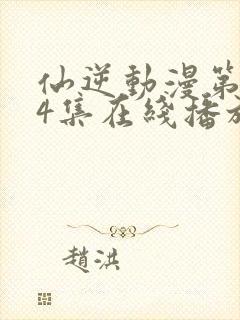 仙逆動漫第
4集在綫播放
趙洪